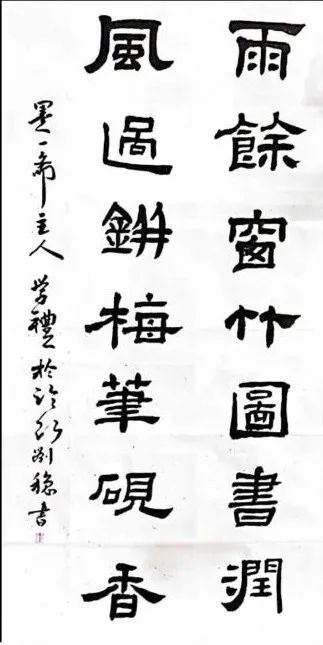 雨餘窗竹圖書潤
風過缾梅筆硯香
墨一席主人学禮於
書